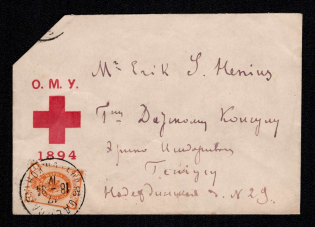 О. М. У.
1894
Mr Erik S. Henius
Гну Датскому Консулу
Эрику
Генiусу
Надеждинская д. N 29.